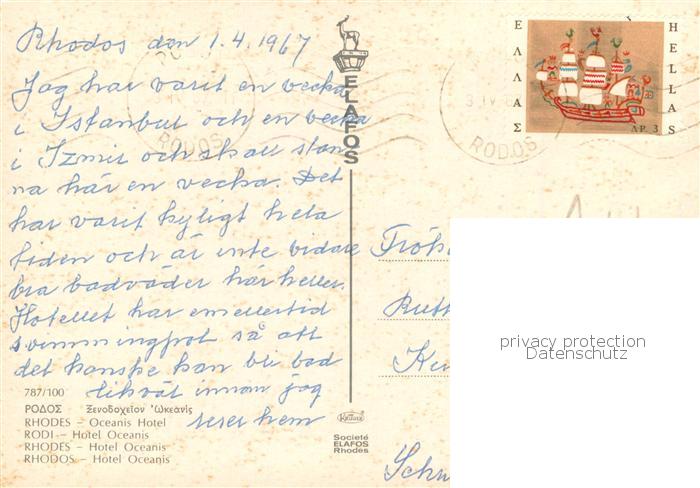 Rhodos den 1.4.1967
Jag har varit en vecka
i Istanbul och en vecka
i Izmir och skall stan
na här en vecka. Det
har varit kyligt hela
tiden och är inte vidare
bra badväder här heller.
Hotellet har emellertid
swimmingpol så att
det kanske kan bli bad
likväl innan jag
reser hem
787/100
ΡΟΔΟΣ Ξενοδοχεῖον Ὠκεανίς
RHODES – Oceanis Hotel
RODI – Hotel Oceanis
RHODES – Hotel Oceanis
RHODOS – Hotel Oceanis
ELAFOS
Societé
ELAFOS
Rhodes
ΕΛΛΑΣ
HELLAS
ΔΡ. 3
RODOS
RODOS
privacy protection
Datenschutz